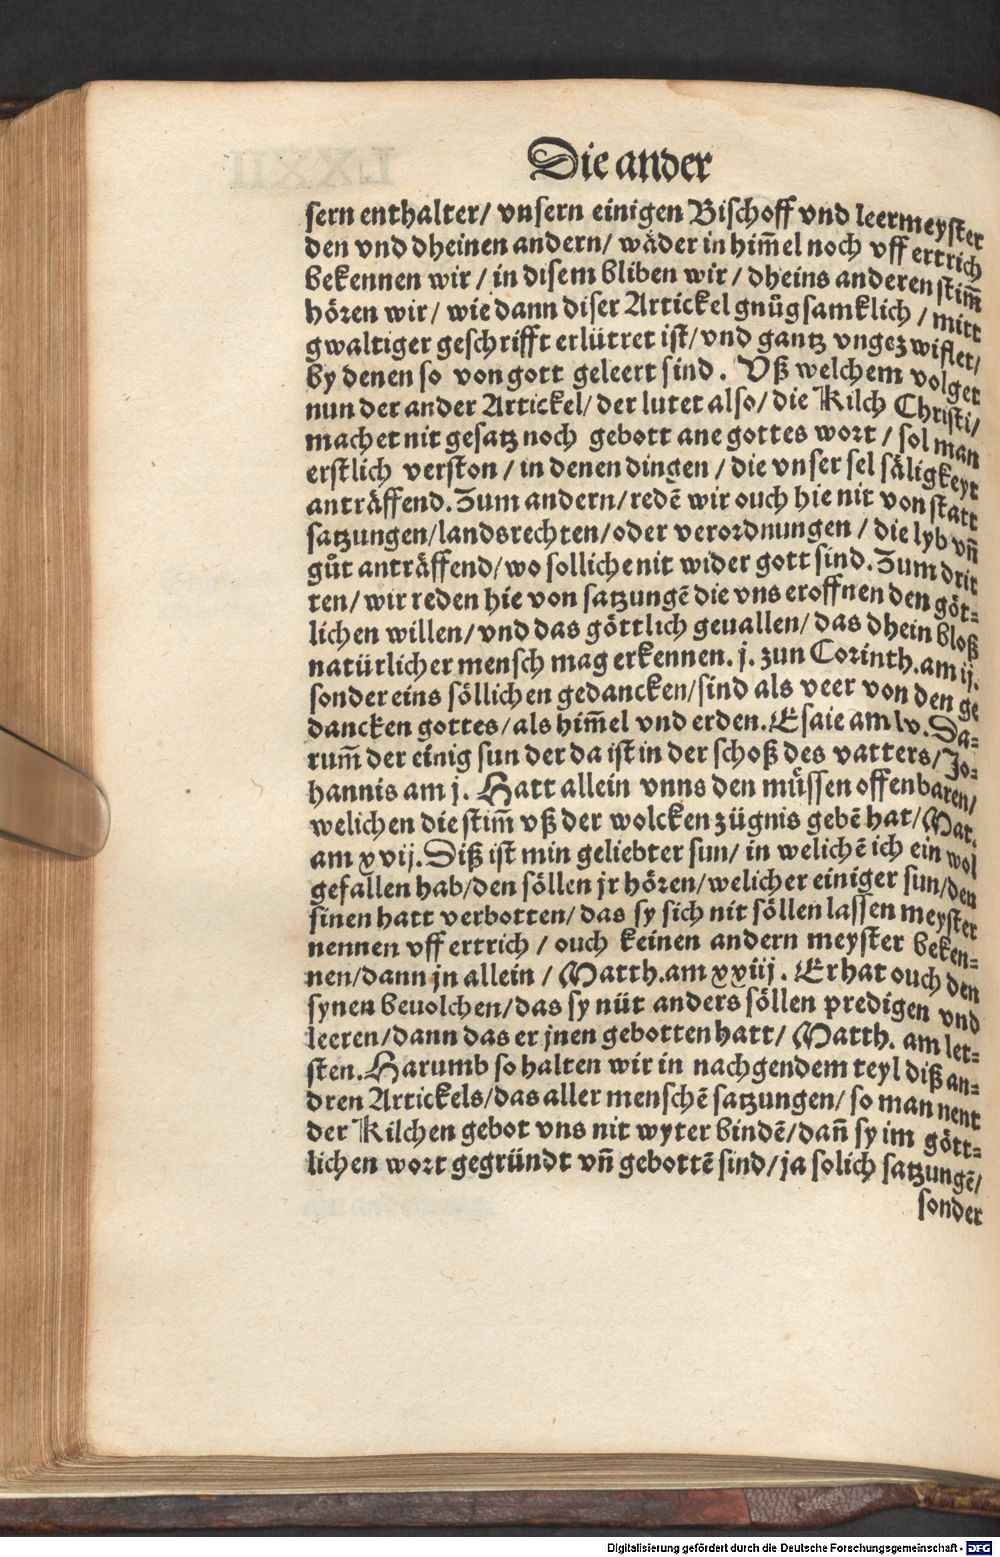 Die ander
sern enthalter/ vnsern einigen Bischoff vnd leermeyster
den vnd dheinen andern/ wäder in him̃el noch vff ertrich
bekennen wir / in disem bliben wir / dheins anderen stim̃
hören wir/ wie dann diser Artickel gnůgsamklich / mitt
gwaltiger geschrifft erlütret ist/ vnd gantz vngezwiflet/
by denen so von gott geleert sind. Vß welchem volget
nun der ander Artickel/ der lutet also/ die Kilch Christi/
machet nit gesatz noch gebott ane gottes wort / sol man
erstlich verston / in denen dingen / die vnser sel säligkeyt
anträffend. Zum andern/ redẽ wir ouch hie nit von statt
satzungen/landsrechten/oder verordnungen / die lyb vñ
gůt anträffend/ wo solliche nit wider gott sind. Zum drit
ten/ wir reden hie von satzungẽ die vns eroffnen den göt-
lichen willen/ vnd das göttlich geuallen/ das dhein bloß
natürlicher mensch mag erkennen. j. zun Corinth. am ij.
sonder eins söllichen gedancken/ sind als veer von den ge
dancken gottes/ als him̃el vnd erden. Esaie am lv. Da-
rum̃ der einig sun der da ist in der schoß des vatters/ Jo-
hannis am j. Hatt allein vnns den müssen offenbaren/
welichen die stim̃ vß der wolcken zügnis gebẽ hat/ Mat.
am xvij. Diß ist min geliebter sun/ in welichẽ ich ein wol
gefallen hab/den söllen jr hören/ welicher einiger sun/den
sinen hatt verbotten/ das sy sich nit söllen lassen meyster
nennen vff ertrich / ouch keinen andern meyster beken-
nen/dann jn allein / Matth. am xxiij. Er hat ouch den
synen beuolchen/das sy nüt anders söllen predigen vnd
leeren/dann das er jnen gebotten hatt/ Matth. am let-
sten. Harumb so halten wir in nachgendem teyl diß an-
dren Artickels/das aller menschẽ satzungen/ so man nent
der Kilchen gebot vns nit wyter bindẽ/dañ sy im gött-
lichen wort gegründt vñ gebottẽ sind/ ja solich satzungẽ/
sonder
Digitalisierung gefördert durch die Deutsche Forschungsgemeinschaft - DFG